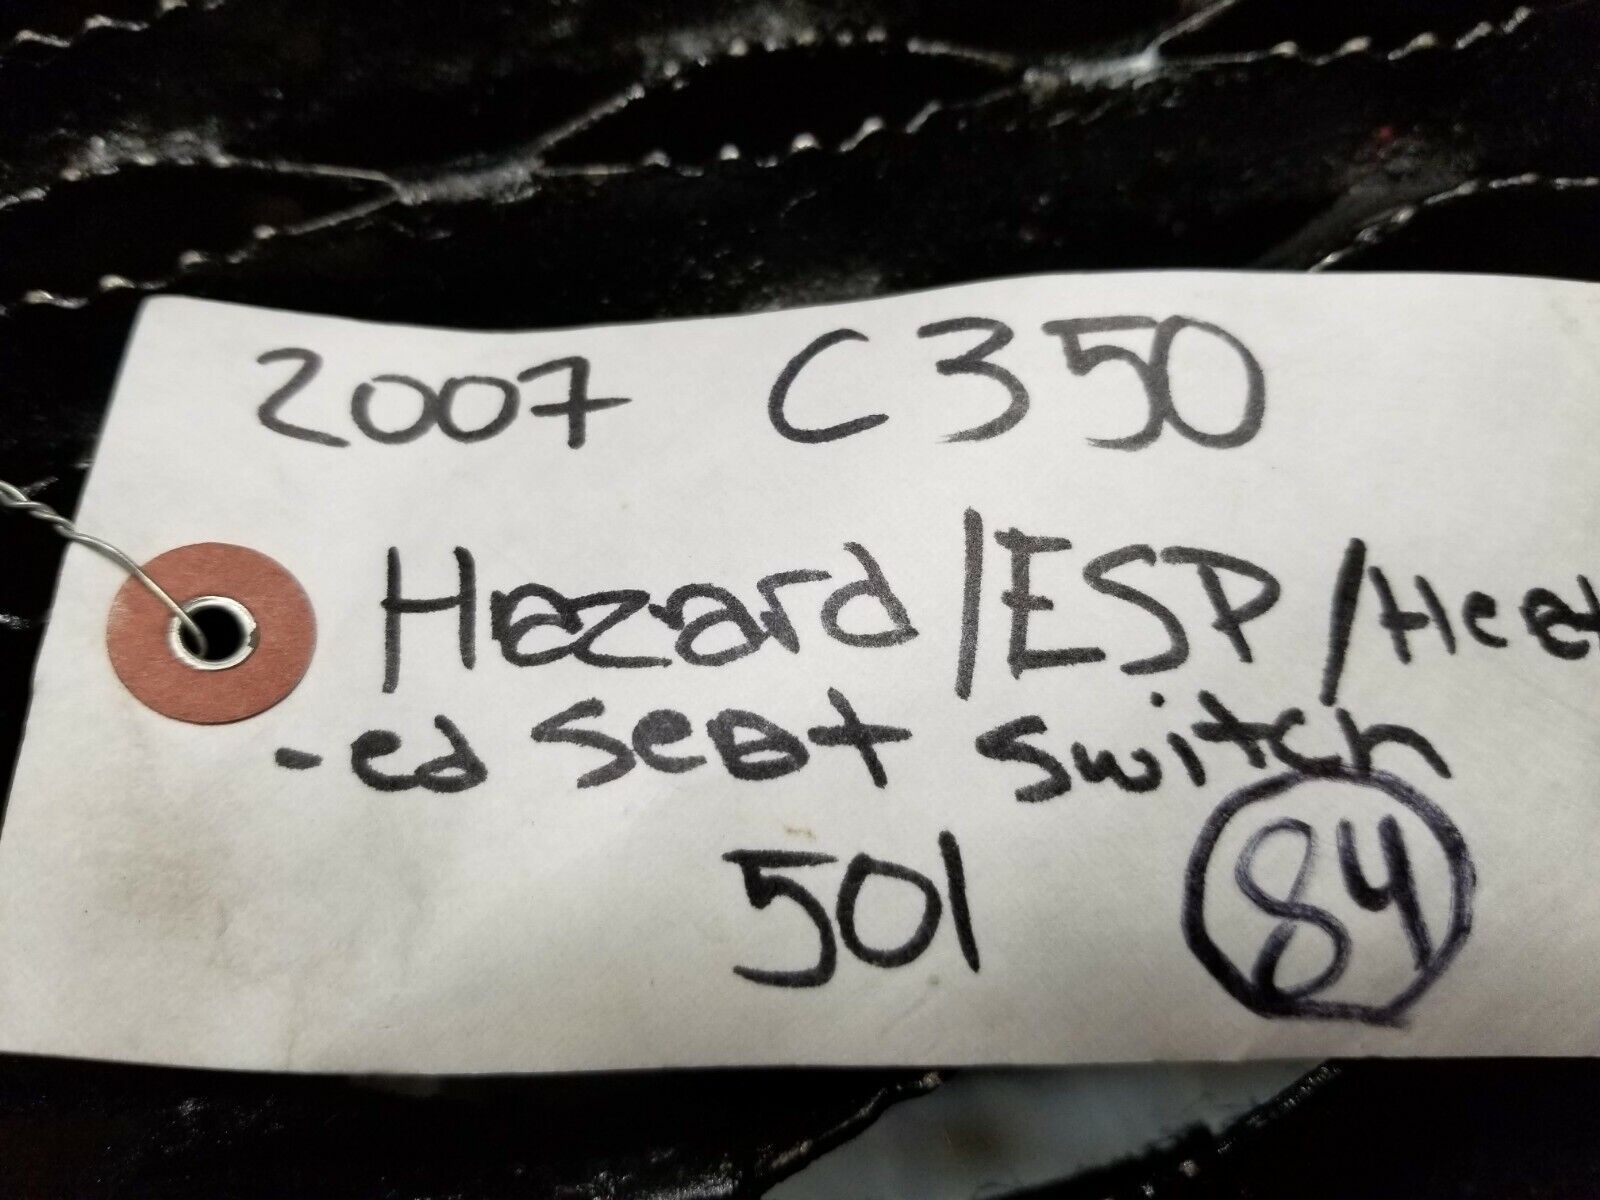 2007 C350
Hazard/ESP/Heat
-ed seat switch
501 84